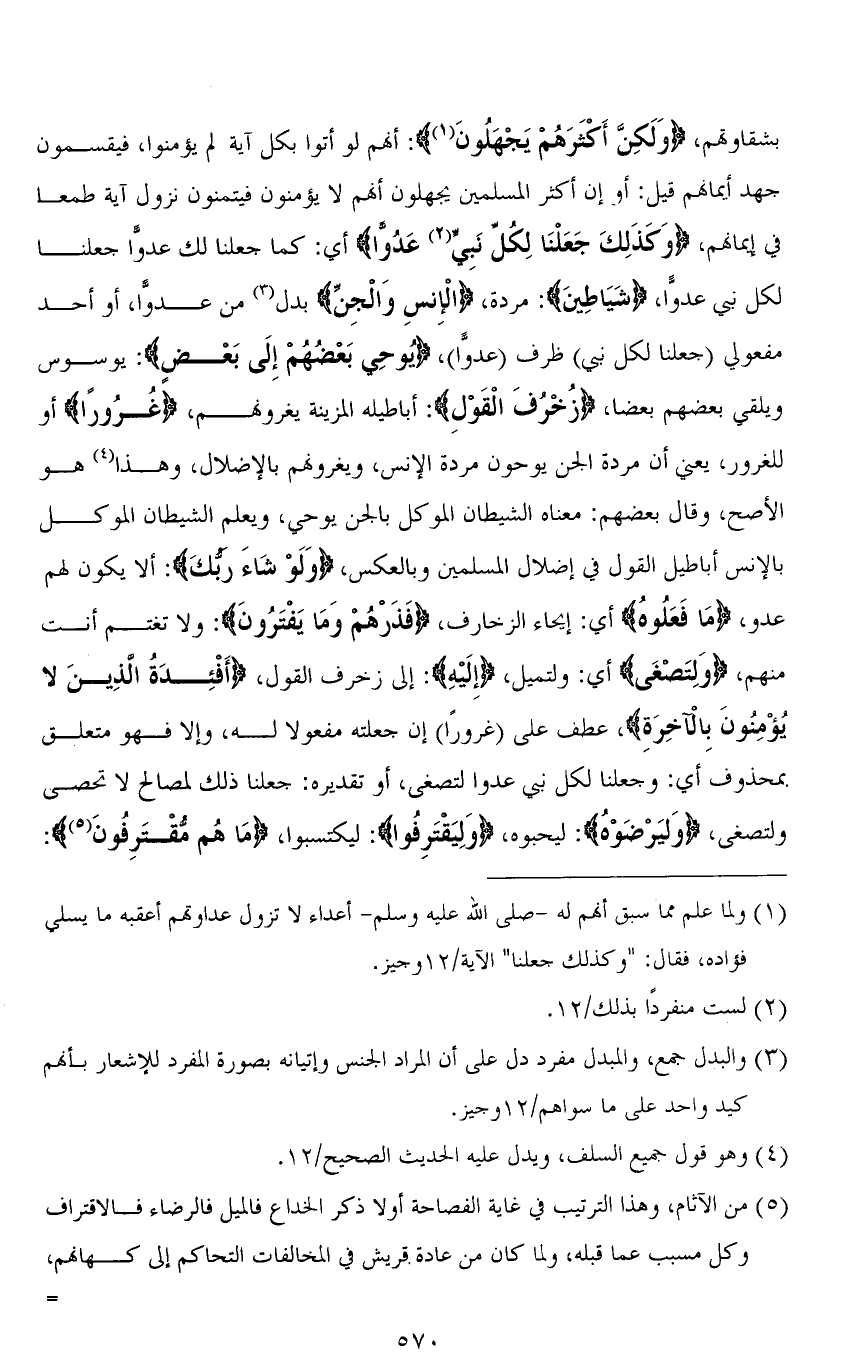 بشقاوتهم، ﴿وَلَكِنَّ أَكْثَرَهُمْ يَجْهَلُونَ(١)﴾: أنهم لو أتوا بكل آية لم يؤمنوا، فيقسمون
جهد أيمانهم قيل: أو إن أكثر المسلمين يجهلون أنهم لا يؤمنون فيتمنون نزول آية طمعا
في إيمانهم، ﴿وَكَذَلِكَ جَعَلْنَا لِكُلِّ نَبِيٍّ(٢) عَدُوًّا﴾ أي: كما جعلنا لك عدوًّا جعلنا
لكل نبي عدوًّا، ﴿شَيَاطِينَ﴾: مردة، ﴿الْإِنسِ وَالْجِنِّ﴾ بدل(٣) من عدوًّا، أو أحد
مفعولي (جعلنا لكل نبي) ظرف (عدوًّا)، ﴿يُوحِي بَعْضُهُمْ إِلَى بَعْضٍ﴾: يوسوس
ويلقي بعضهم بعضا، ﴿زُخْرُفَ الْقَوْلِ﴾: أباطيله المزينة يغرونهم، ﴿غُرُورًا﴾ أو
للغرور، يعني أن مردة الجن يوحون مردة الإنس، ويغرونهم بالإضلال، وهذا(٤) هو
الأصح، وقال بعضهم: معناه الشيطان الموكل بالجن يوحي، ويعلم الشيطان الموكل
بالإنس أباطيل القول في إضلال المسلمين وبالعكس، ﴿وَلَوْ شَاءَ رَبُّكَ﴾: ألا يكون لهم
عدو، ﴿مَا فَعَلُوهُ﴾ أي: إيحاء الزخارف، ﴿فَذَرْهُمْ وَمَا يَفْتَرُونَ﴾: ولا تغتم أنت
منهم، ﴿وَلِتَصْغَى﴾ أي: ولتميل، ﴿إِلَيْهِ﴾: إلى زخرف القول، ﴿أَفْئِدَةُ الَّذِينَ لا
يُؤْمِنُونَ بِالْآخِرَةِ﴾، عطف على (غرورًا) إن جعلته مفعولا له، وإلا فهو متعلق
بمحذوف أي: وجعلنا لكل نبي عدوا لتصغى، أو تقديره: جعلنا ذلك لمصالح لا تحصى
ولتصغى، ﴿وَلِيَرْضَوْهُ﴾: ليحبوه، ﴿وَلِيَقْتَرِفُوا﴾: ليكتسبوا، ﴿مَا هُم مُّقْتَرِفُونَ(٥)﴾:
(١) ولما علم مما سبق أنهم له -صلى الله عليه وسلم- أعداء لا تزول عداوتهم أعقبه ما يسلي
فؤاده، فقال: "وكذلك جعلنا" الآية/١٢وجيز.
(٢) لست منفردًا بذلك/١٢.
(٣) والبدل جمع، والمبدل مفرد دل على أن المراد الجنس وإتيانه بصورة المفرد للإشعار بأنهم
كيد واحد على ما سواهم/١٢وجيز.
(٤) وهو قول جميع السلف، ويدل عليه الحديث الصحيح/١٢.
(٥) من الآثام، وهذا الترتيب في غاية الفصاحة أولا ذكر الخداع فالميل فالرضاء فالاقتراف
وكل مسبب عما قبله، ولما كان من عادة قريش في المخالفات التحاكم إلى كهانهم،
=
٥٧٠